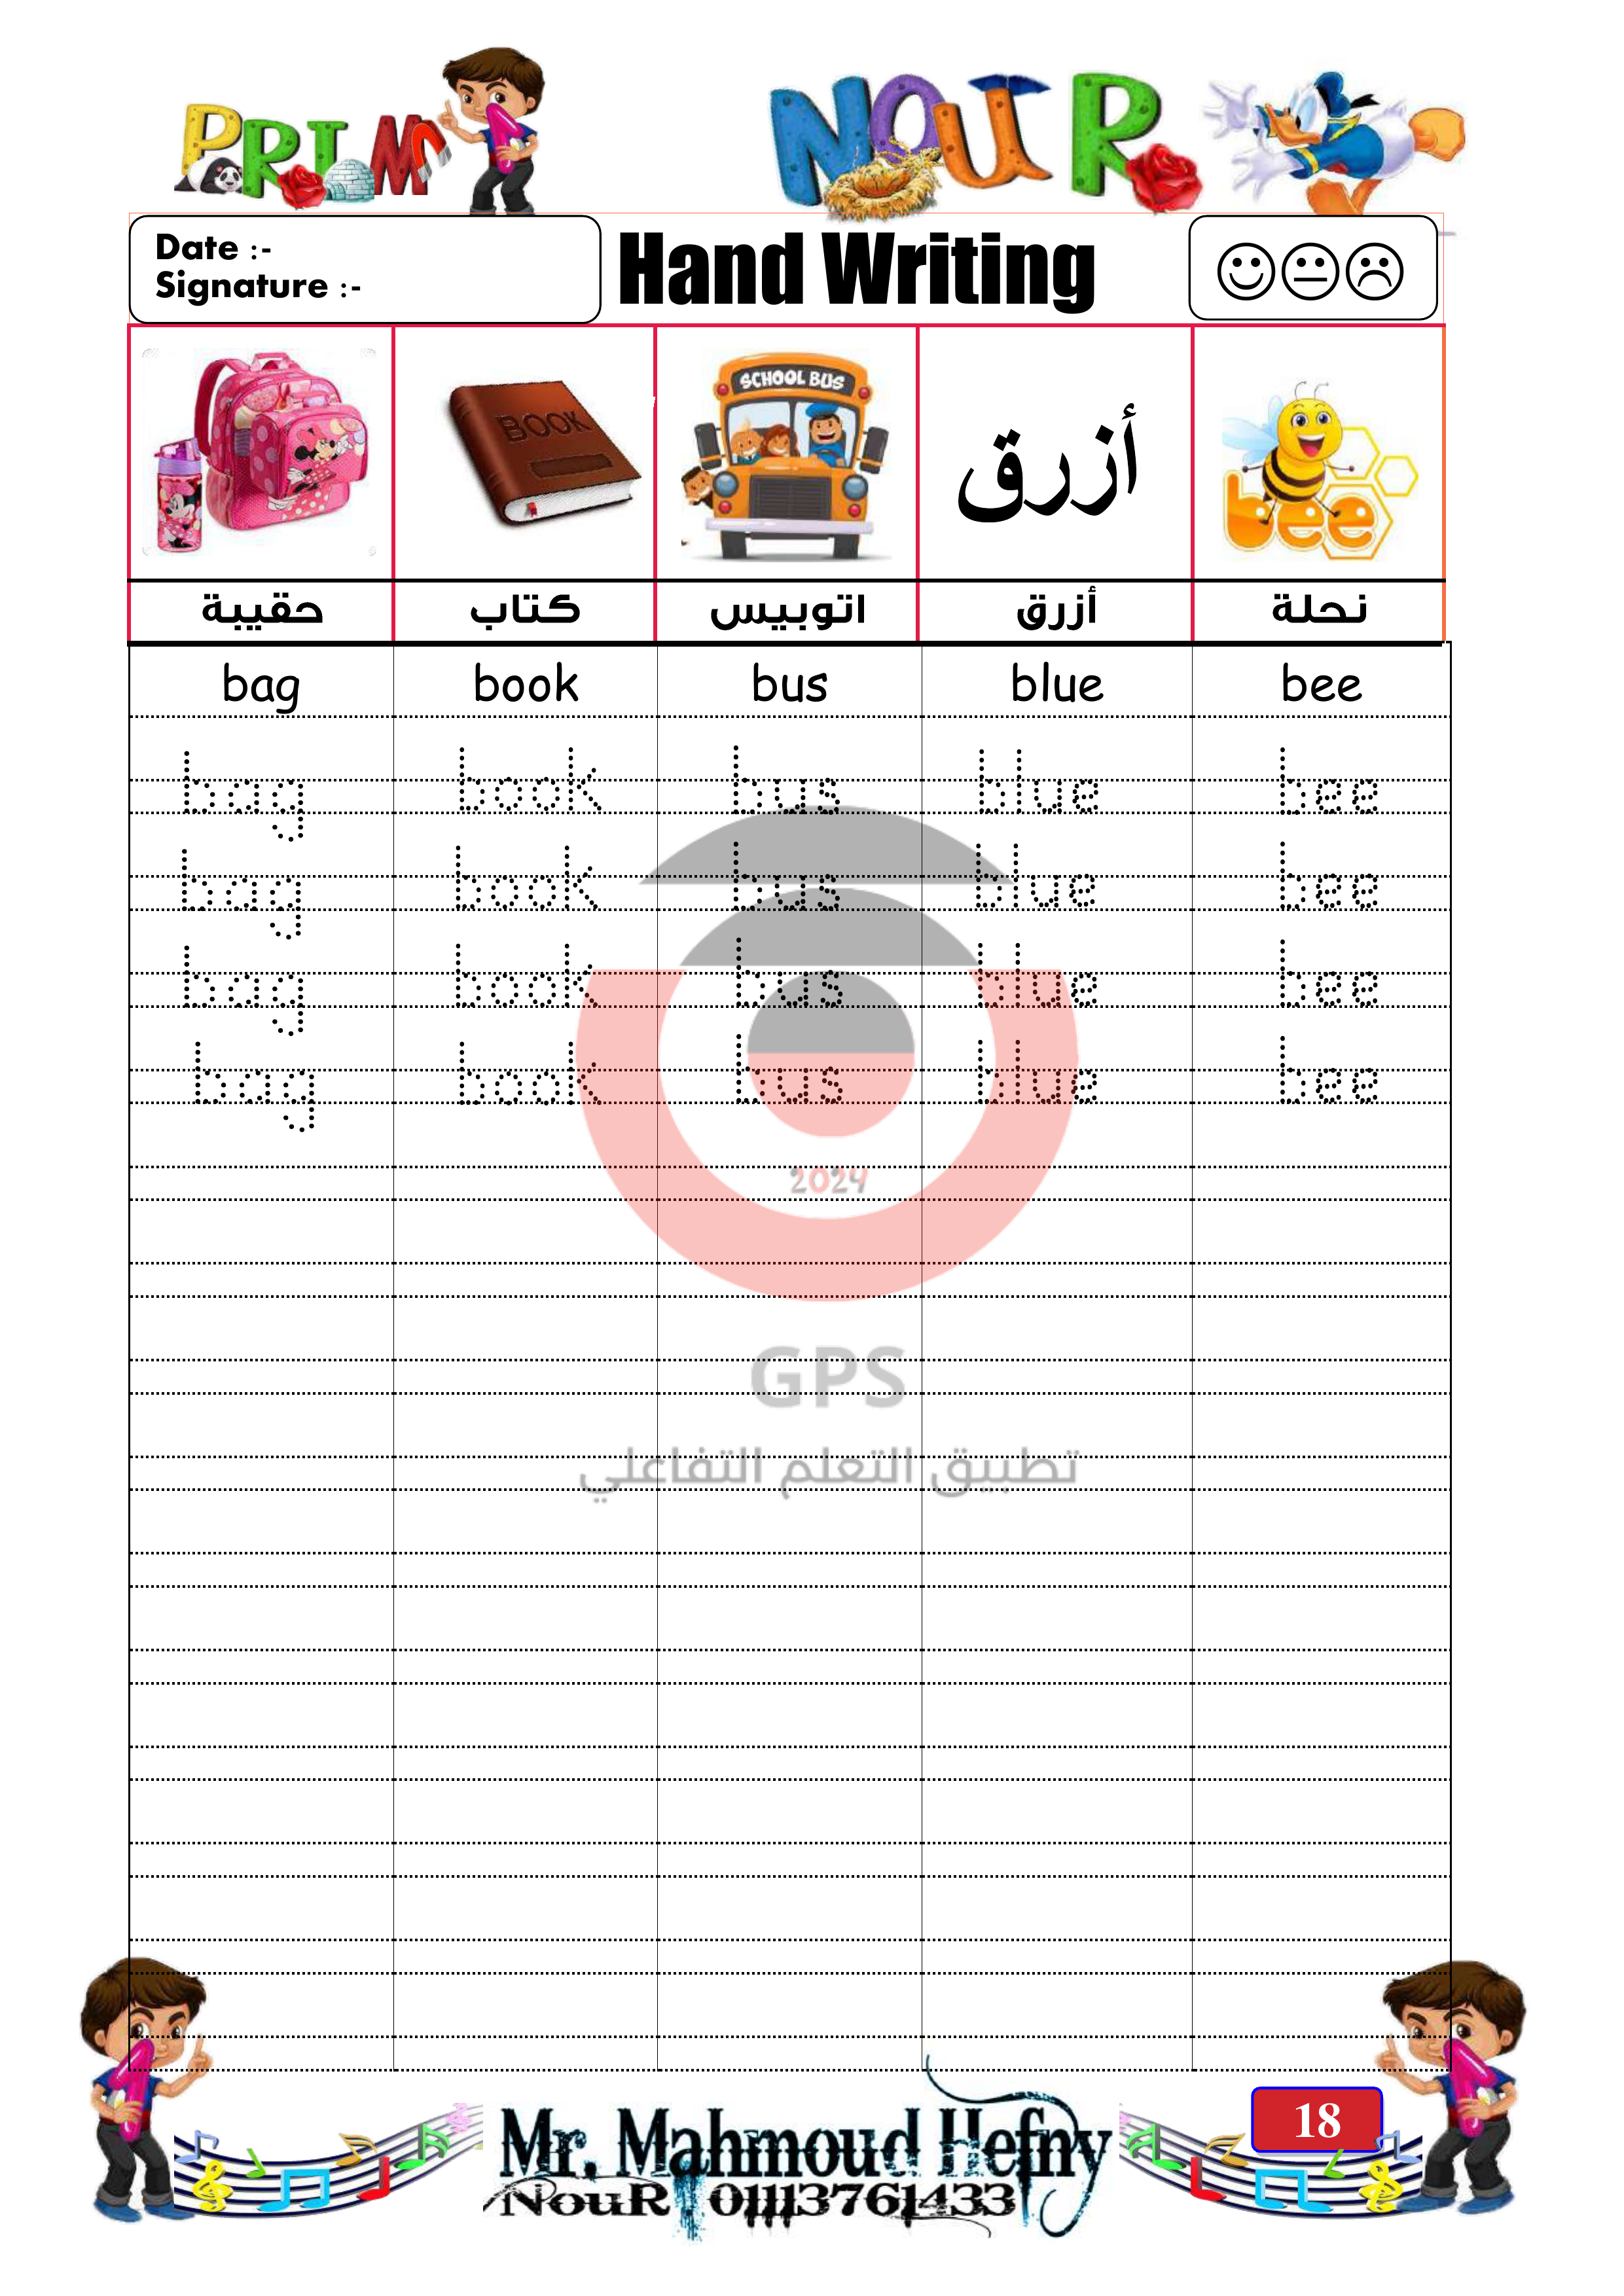 PRIM 1
NOUR
Date :-
Signature :-
Hand Writing
BOOK
SCHOOL BUS
أزرق
bee
حقيبة كتاب اتوبيس أزرق نحلة
bag book bus blue bee
bag book bus blue bee
bag book bus blue bee
bag book bus blue bee
bag book bus blue bee
2024
GPS
تطبيق التعلم التفاعلي
18
Mr. Mahmoud Hefny
NouR . 01113761433